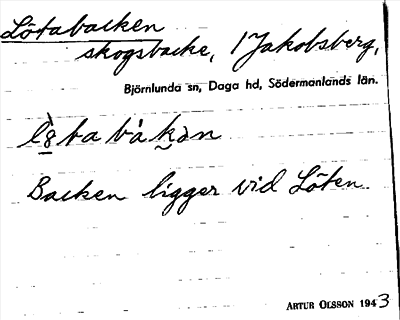 Lötabacken
skogsbacke, / Jakobsberg,
Björnlunda sn, Daga hd, Södermanlands län.
Backen ligger vid Löten.
ARTUR OLSSON 1943